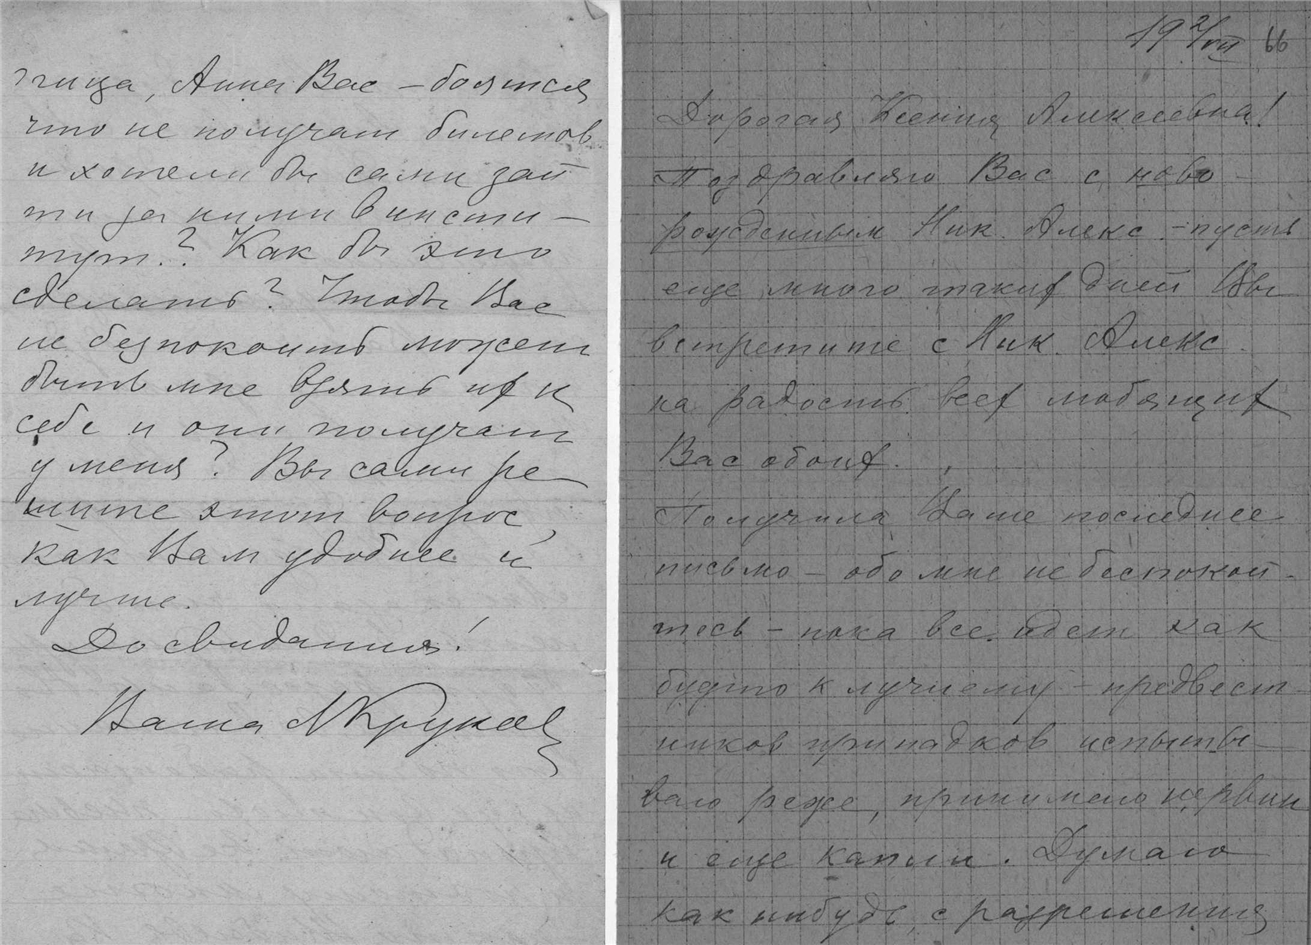 тица, Анна Вас – боятся
что не получат билетов
и хотели бы сами зай
ти за ними в инсти–
тут.? Как бы это
сделать? Чтобы Вас
не безпокоить может
быть мне взять их к
себе и они получат
у меня? Вы сами ре–
шите этот вопрос,
как Вам удобнее и
лучше.
До свидания!
Ваша
19 2/VII 66
Дорогая Ксения Алексеевна!
Поздравляю Вас с ново–
рожденным Ник. Алекс. – пусть
еще много таких дней Вы
встретите с Ник. Алекс.
на радость всех любящих
Вас обоих.
Получила Ваше последнее
письмо – обо мне не беспокой–
тесь – пока все идет как
будто к лучшему – предвест–
ников припадков испыты–
ваю реже, принимаю
и еще капли. Думаю
как нибудь, с разрешения